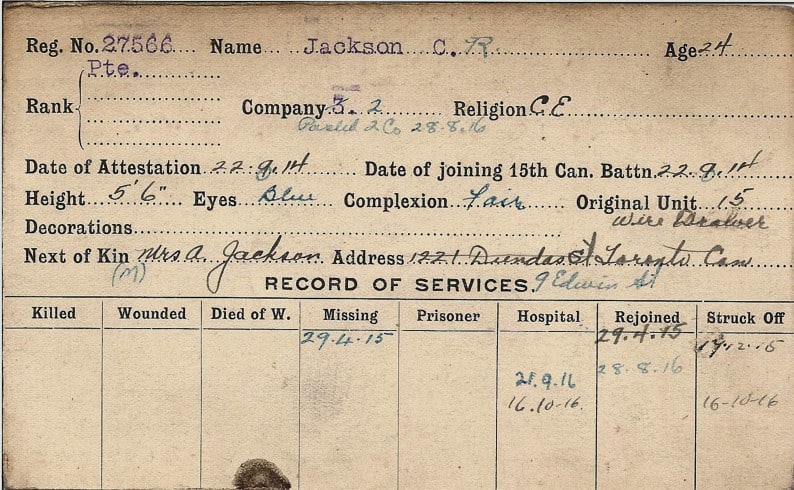 Reg. No. 27566 Name Jackson C. R. Age 24
Pte.
Rank Company 3. 2 Religion C.E
Posted 2 Co 28.8.16
Date of Attestation 22.9.14 Date of joining 15th Can. Battn. 22.9.14
Height 5'6" Eyes Blue Complexion Fair Original Unit 15
Decorations Wire Drawer
Next of Kin Mrs A. Jackson Address 1221 Dundas St Toronto Can
(M) RECORD OF SERVICES 9 Edwin St
Killed Wounded Died of W. Missing Prisoner Hospital Rejoined Struck Off
29.4.15 29.4.15 12.15
21.9.16 28.8.16
16.10-16. 16-10-16